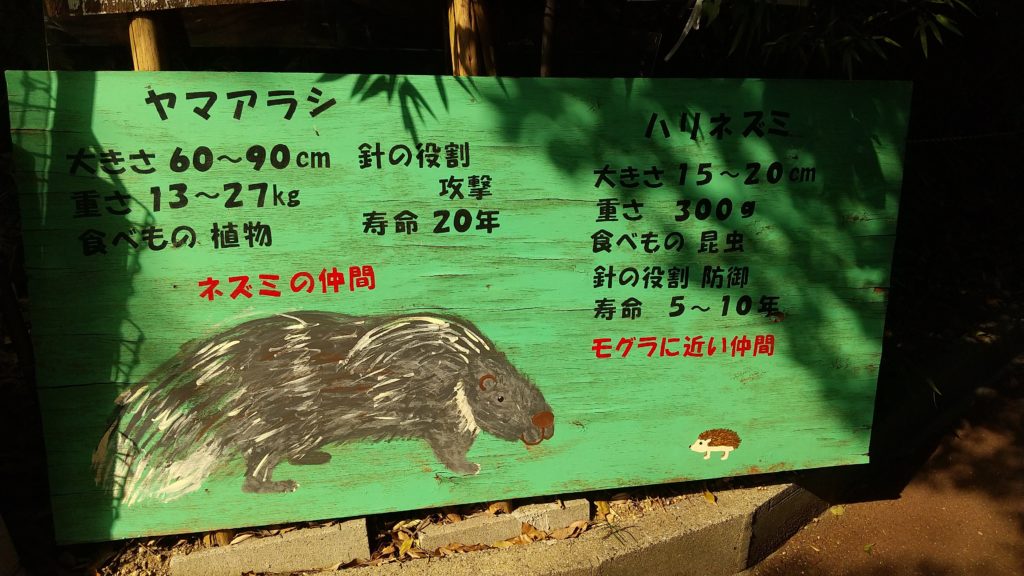 ヤマアラシ
大きさ 60〜90cm
重さ 13〜27kg
食べもの 植物
針の役割
攻撃
寿命 20年
ネズミの仲間
ハリネズミ
大きさ 15〜20cm
重さ 300g
食べもの 昆虫
針の役割 防御
寿命 5〜10年
モグラに近い仲間